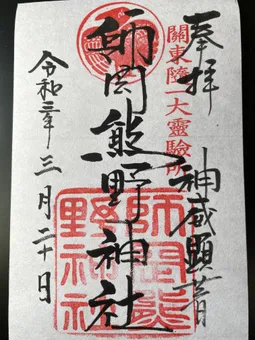 奉拝
關東隨一大霊驗所
神威顕著
師岡熊野神社
師岡熊野神社
令和三年三月二十日